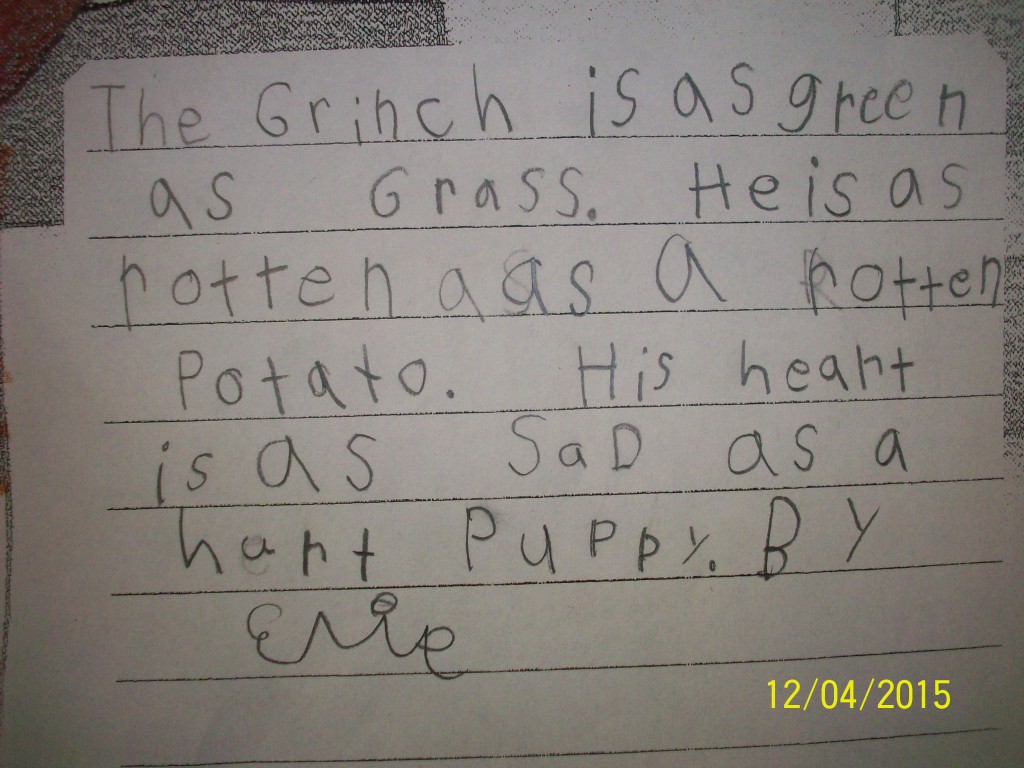 The Grinch is as green
as Grass. He is as
rotten a as a rotten
Potato. His heart
is as SaD as a
hart Puppy. By
12/04/2015